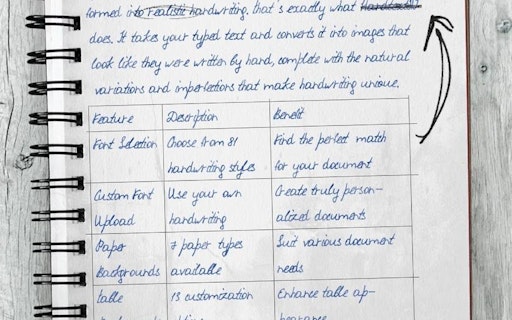 formed into Realistic handwriting, that's exactly what
does. It takes your typed text and converts it into images that
look like they were written by hand, complete with the natural
variations and imperfections that make handwriting unique.
Feature Description Benefit
Font Selection Choose from 81 Find the perfect match
handwriting styles for your document
Custom Font Use your own Create truly person-
Upload handwriting alized documents
Paper 7 paper types Suit various document
Backgrounds available needs
table 13 customization Enhance table ap-